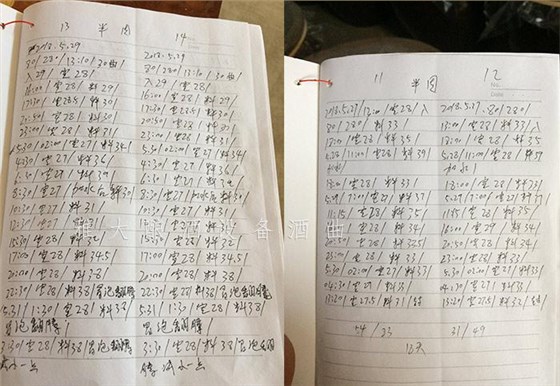 13 半固
2018.5.29
80/28/13:10/30曲/
入29/室28/
16:00/室28/料29/
17:30/室28.5/料30/
21:50/室28/料30/
23:00/室28/料31/
5.30/02:00/室27/料34/
4:30/室27/料36/
6:30/室27/料39/
8:30/室27/加水后料30/
10:30/室27/料31/
15:30/室28/料32/
17:00/室28/料34.5/
20:00/室28/料38/
22:30/室28/料38/冒泡翻腾/
5.31/1:30/室28/料38/
冒泡翻腾/
3:30/室28/料38/冒泡翻腾
减小一点
14
2018.5.29
80/28/13:10/30曲/
入29/室28/
16:00/室28/料29/
17:30/室28.5/料30/
21:50/室28/料30/
23:00/室28/料31/
5.30/02:00/室27/料34/
4:30/室27/料36/
6:30/室27/料39/
8:30/室27/加水后料30/
10:30/室27/料31/
15:30/室28/料32/
17:00/室28/料34.5/
20:00/室28/料38/
22:30/室28/料38/冒泡翻腾
5.31/1:30/室28/料38/
冒泡翻腾/
3:30/室28/料38/冒泡翻
腾减小一点
11 半固
2018.5.27/12:00/室28/入
80/28/料33/
18:00/室28/料35/
5.28/11:00/室28/料39/
加水/
18:00/室28/料33/
5.29/7:00/室27/料37/
11:15/室28/料35/
16:00/室28/料34/
20:50/室28/料34.5/
23:00/室28/料33/
5.30/02:00/室27/料33/
04:30/室27/料31/
13:20/室27.5/料31/
44/33
12
2018.5.27/80/28/
12:00/室28/料33/入
18:00/室28/料35
5.28/11:00/室28/料39
加水/
18:00/室28/料33/
5.29/7:00/室27/料37/
11:15/室28/料35/
16:00/室29/料34/
20:50/室28/料34/
23:00/室28/料33/
5.30/02:00/室27/料33/
04:30/室27/料31/
13:20/室27.5/料32/
31/49
12天
雅大 酒设备酒曲